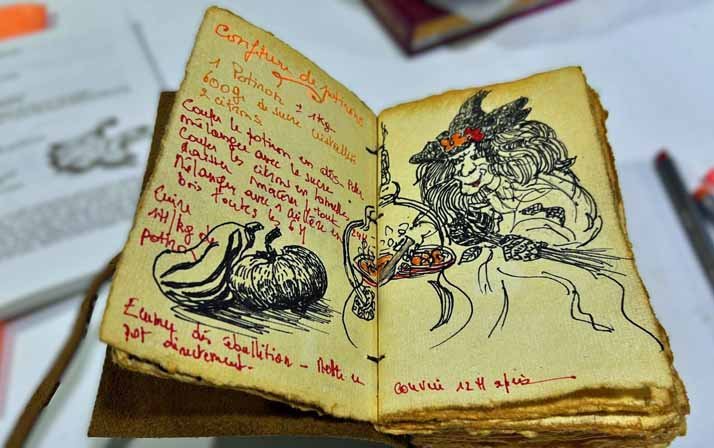 Confiture de potirons
1 Potiron ± 1Kg
600gr de sucre cristallisé
2 citrons
Couper le potiron en dés.
mélanger avec le sucre
Couper les citrons en rondelles,
laisser macérer 24H
Mélanger avec 1 cuillère en
bois toutes les 6H
Cuire
1H/kg de
potiron
Ecumer dès ébullition - Mettre en
pot directement.
couvrir 12H après